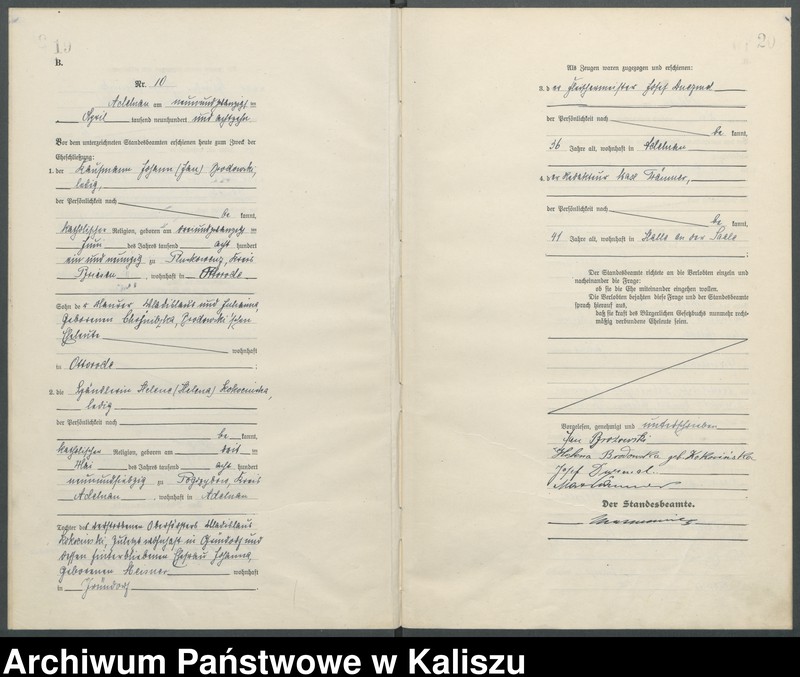 B.
Nr. 10
Adelnau am neunundzwanzigsten
April tausend neunhundert und achtzehn
Vor dem unterzeichneten Standesbeamten erschienen heute zum Zweck der
Eheschließung:
1. der Kaufmann Johann (Jan) Brodowski,
ledig,
der Persönlichkeit nach
be kannt,
katholischer Religion, geboren am
Juni des Jahres tausend acht hundert
ein und neunzig zu Kreis
, wohnhaft in Ottorode
Sohn der Rentner, Wladislaus und Johanna,
geborenen Brodowski'schen
Eheleute
wohnhaft
in Ottorode ;
2. die Händlerin Helene (Helena) Kokocinska,
ledig
der Persönlichkeit nach
be kannt,
katholischer Religion, geboren am
Mai des Jahres tausend acht hundert
neunundsiebzig zu Kreis
Adelnau , wohnhaft in Adelnau
Tochter des verstorbenen Wladislaus
Kokocinski, zuletzt wohnhaft in Gründorf und
dessen hinterbliebenen Ehefrau Johanna,
geborenen wohnhaft
in Gründorf .
20
Als Zeugen waren zugezogen und erschienen:
3. der Josef
der Persönlichkeit nach
be kannt,
36 Jahre alt, wohnhaft in Adelnau
4. der Redakteur Max
der Persönlichkeit nach
be kannt,
41 Jahre alt, wohnhaft in Halle an der Saale
;
Der Standesbeamte richtete an die Verlobten einzeln und
nacheinander die Frage:
ob sie die Ehe miteinander eingehen wollen.
Die Verlobten bejahten diese Frage und der Standesbeamte
sprach hierauf aus,
daß sie kraft des Bürgerlichen Gesetzbuchs nunmehr recht-
mäßig verbundene Eheleute seien.
Vorgelesen, genehmigt und unterschrieben
Jan Brodowski
Helena Brodowska geb. Kokocińska
Josef
Max
Der Standesbeamte.
Archiwum Państwowe w Kaliszu